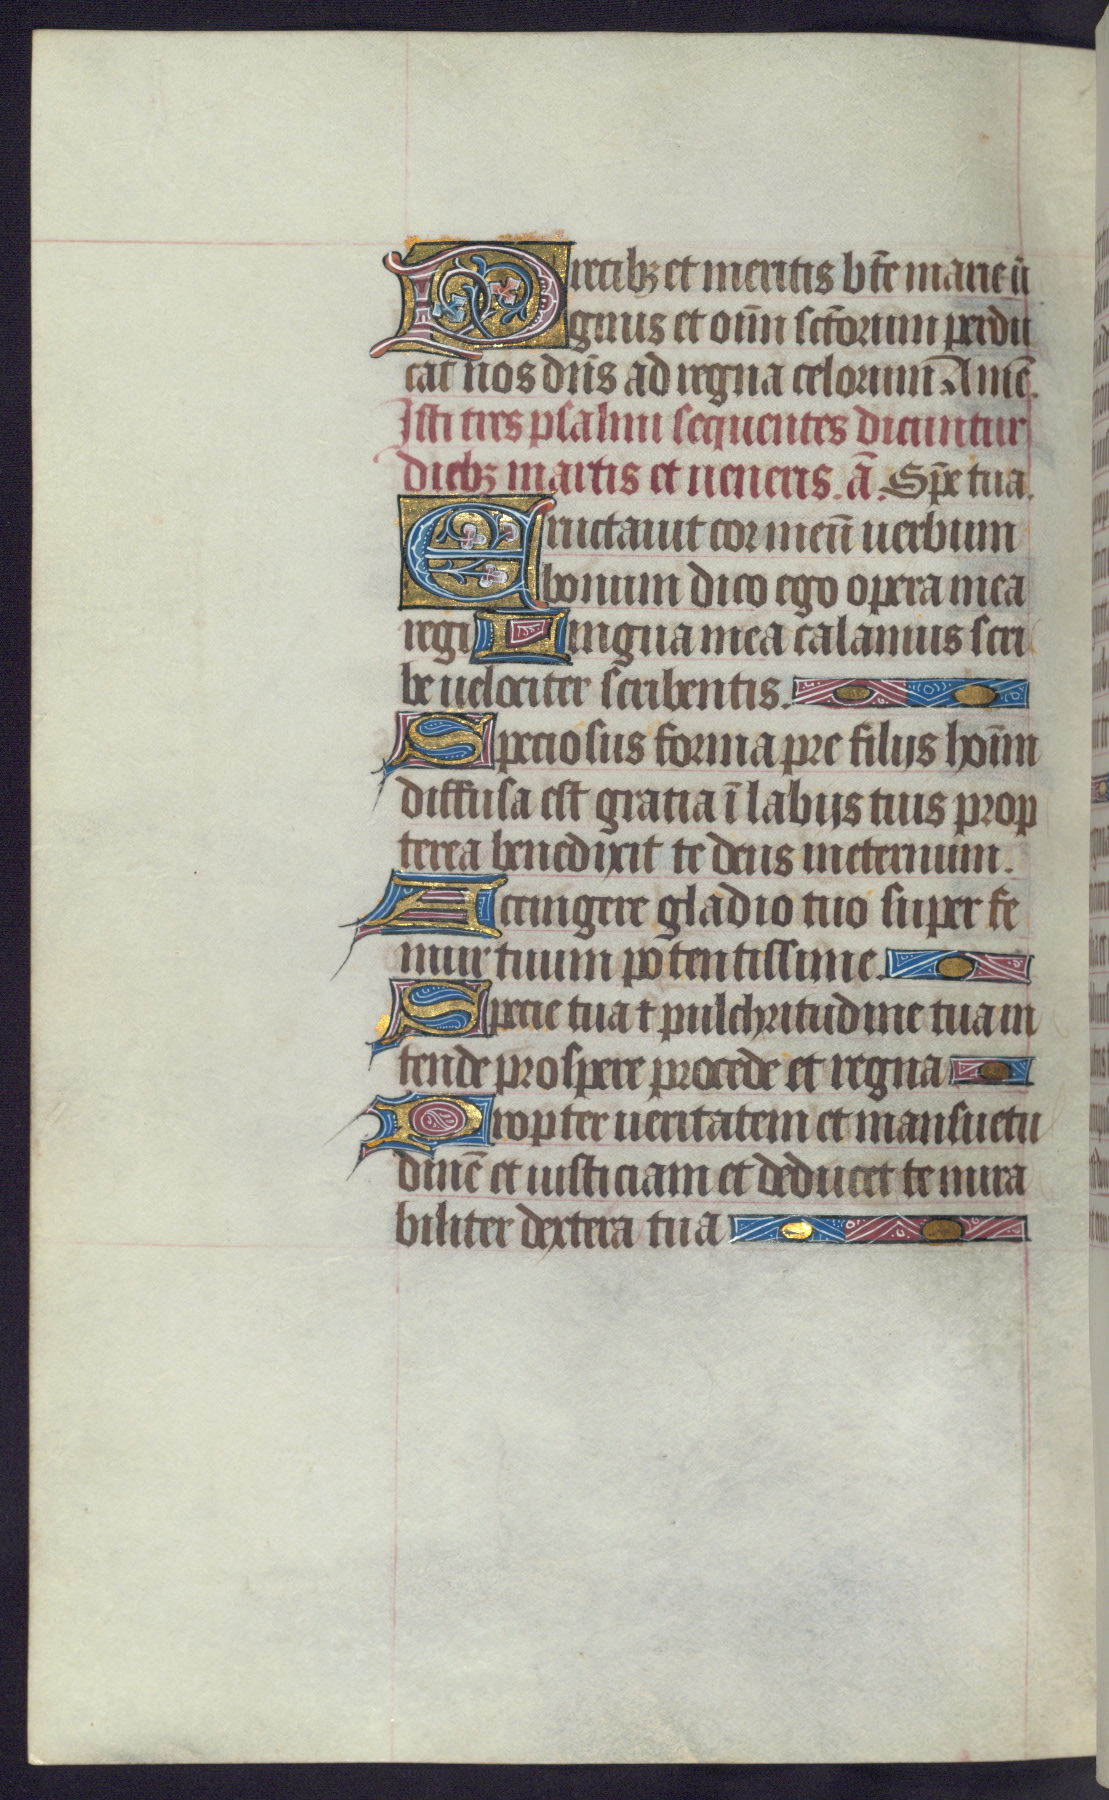 Precibꝫ et meritis bt̄e marie ū
ginis et om̄i sct̄orum perdu
cat nos dn̄s ad regna celorum. Amē.
Isti tres psalmi sequentes dicuntur
diebꝫ martis et ueneris. ā. Sp̄e tua.
Eructauit cor meū uerbum
bonum dico ego opera mea
regi Lingua mea calamus scri
be uelociter scribentis.
Speciosus forma pre filijs hoīm
diffusa est gratia ī labijs tuis prop
terea benedixit te deus ineternum.
Accingere gladio tuo super fe
mur tuum potentissime.
Specie tua ⁊ pulchritudine tua in
tende prospere procede et regna
Propter ueritatem et mansuetu
dinē et iusticiam et deducet te mira
biliter dextera tua